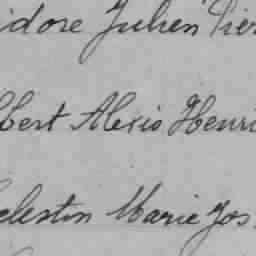 idore Julien Pier
lbert Alexis Henri
elestin Marie Jos